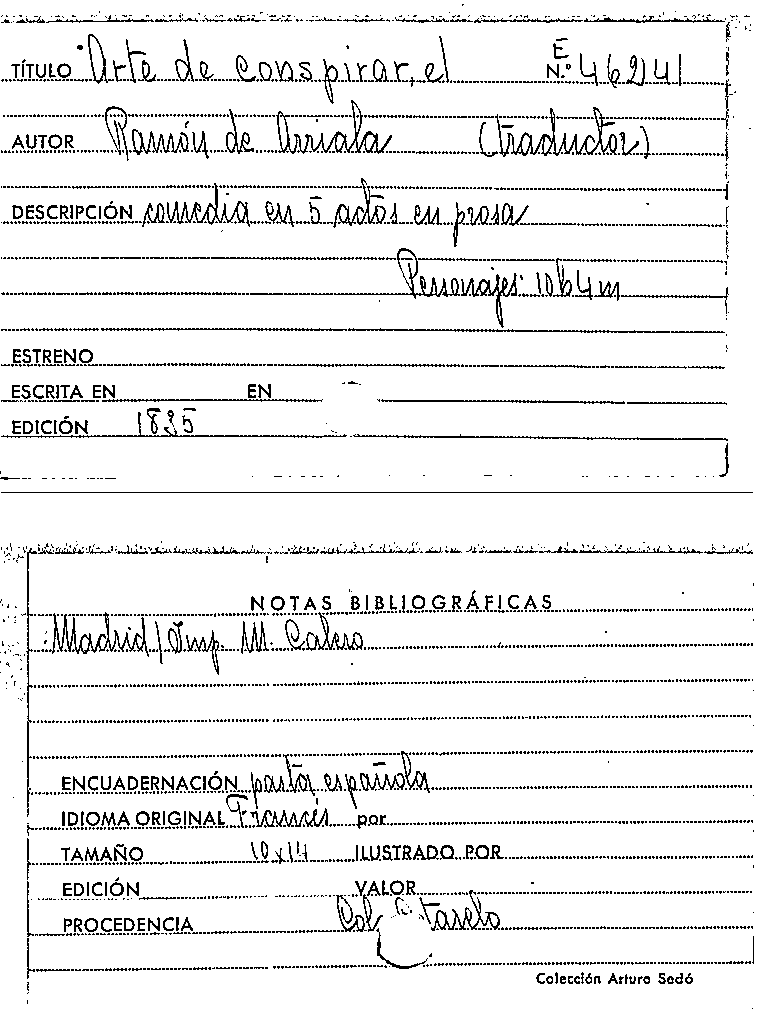 TÍTULO Arte de conspirar, el E N.º 46241
AUTOR Ramón de Arriala (traductor)
DESCRIPCIÓN comedia en 5 actos en prosa
Personajes: 10 h 4 m
ESTRENO
ESCRITA EN EN
EDICIÓN 1835
NOTAS BIBLIOGRÁFICAS
Madrid / Imp. M. Calero
ENCUADERNACIÓN pasta española
IDIOMA ORIGINAL Francés por
TAMAÑO 10 x 14 ILUSTRADO POR
EDICIÓN VALOR
PROCEDENCIA Col.
Colección Arturo Sedó